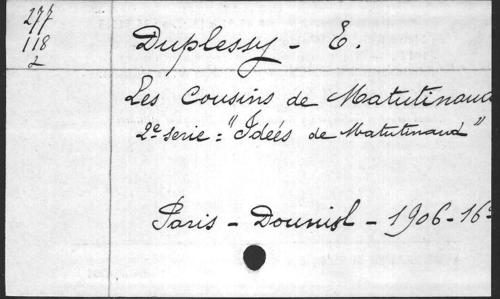 277
118
2
Duplessy - E.
Les Cousins de Matutinaud
2e serie = "Idéés de Matutinaud"
Paris - Douniol - 1906 - 16º